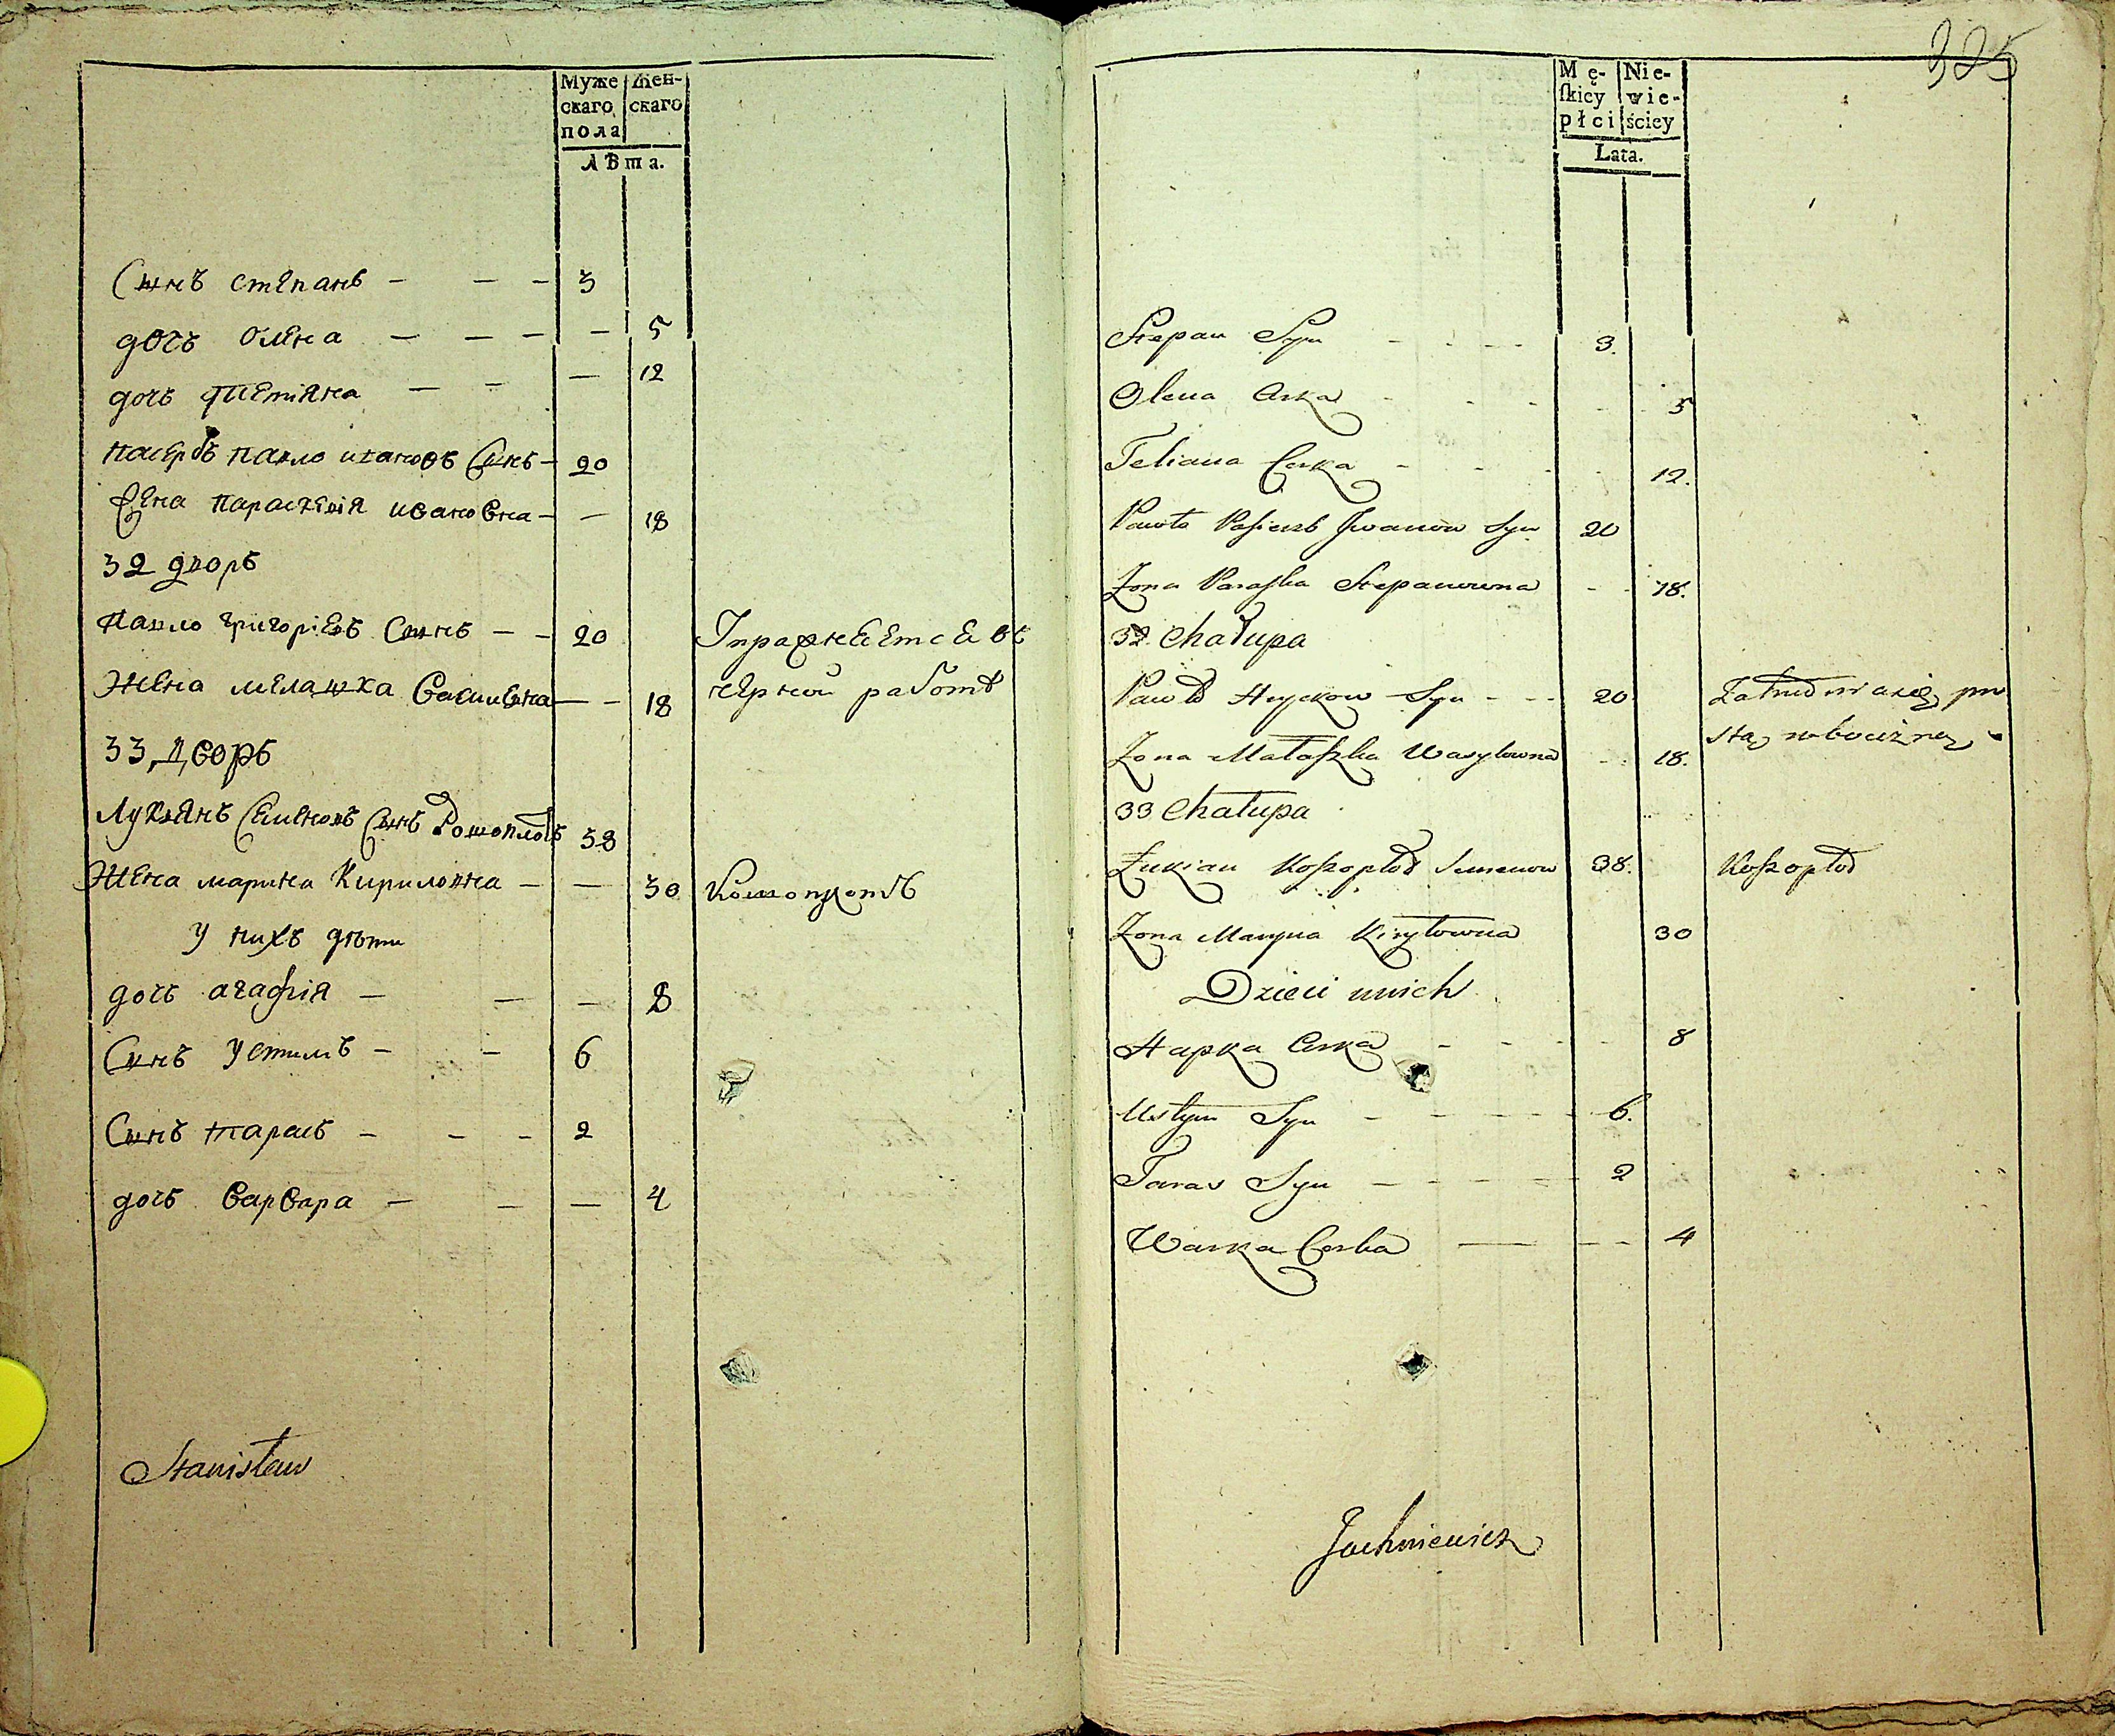 Муже
скаго
пола
Жен-
скаго
Лѣта.
Сынъ степанъ — — — 3
дочь Олена — — — — 5
дочь Тетіяна — — — 12
пасербъ павло ивановъ Сынъ — 20
Жена параскевія ивановна — — 18
32 дворъ
павло григоріевъ Сынъ — — 20 Упражняется въ
Жена мелашка василевна — — 18 черной работѣ
33 дворъ
Лукіянъ Семеновъ Сынъ Кошоплодъ 38
Жена марина Кириловна — — 30 Кошоплотъ
У нихъ дѣти
дочь агафія — — — 8
Сынъ Устимъ — — 6
Сынъ тарасъ — — — 2
дочь варвара — — — 4
Stanisław
325
Mę-
ſkiey
płci
Nie-
wie-
ściey
Lata.
Stepan Syn - - - - 3.
Olena Crka - - - - - 5
Tetiana Corka - - - - 12.
Pawło Paſierb Jwanow Syn 20
Zona Paraſka Stepanowna - - 18.
32 Chałupa
Pawło Hryckow Syn - - - 20 Zatrudnia się pro
Zona Małaſzka Wasylowna - - 18. stą robocizną
33 Chałupa
Łukian Koſzopłod Semenow 38. Koſzopłod
Zona Maryna Kiryłowna 30
Dzieci unich
Hapka Crka - - - - 8
Ustym Syn - - - - - 6.
Taras Syn - - - - - 2
Warka Corka — - - 4
Jachniewicz